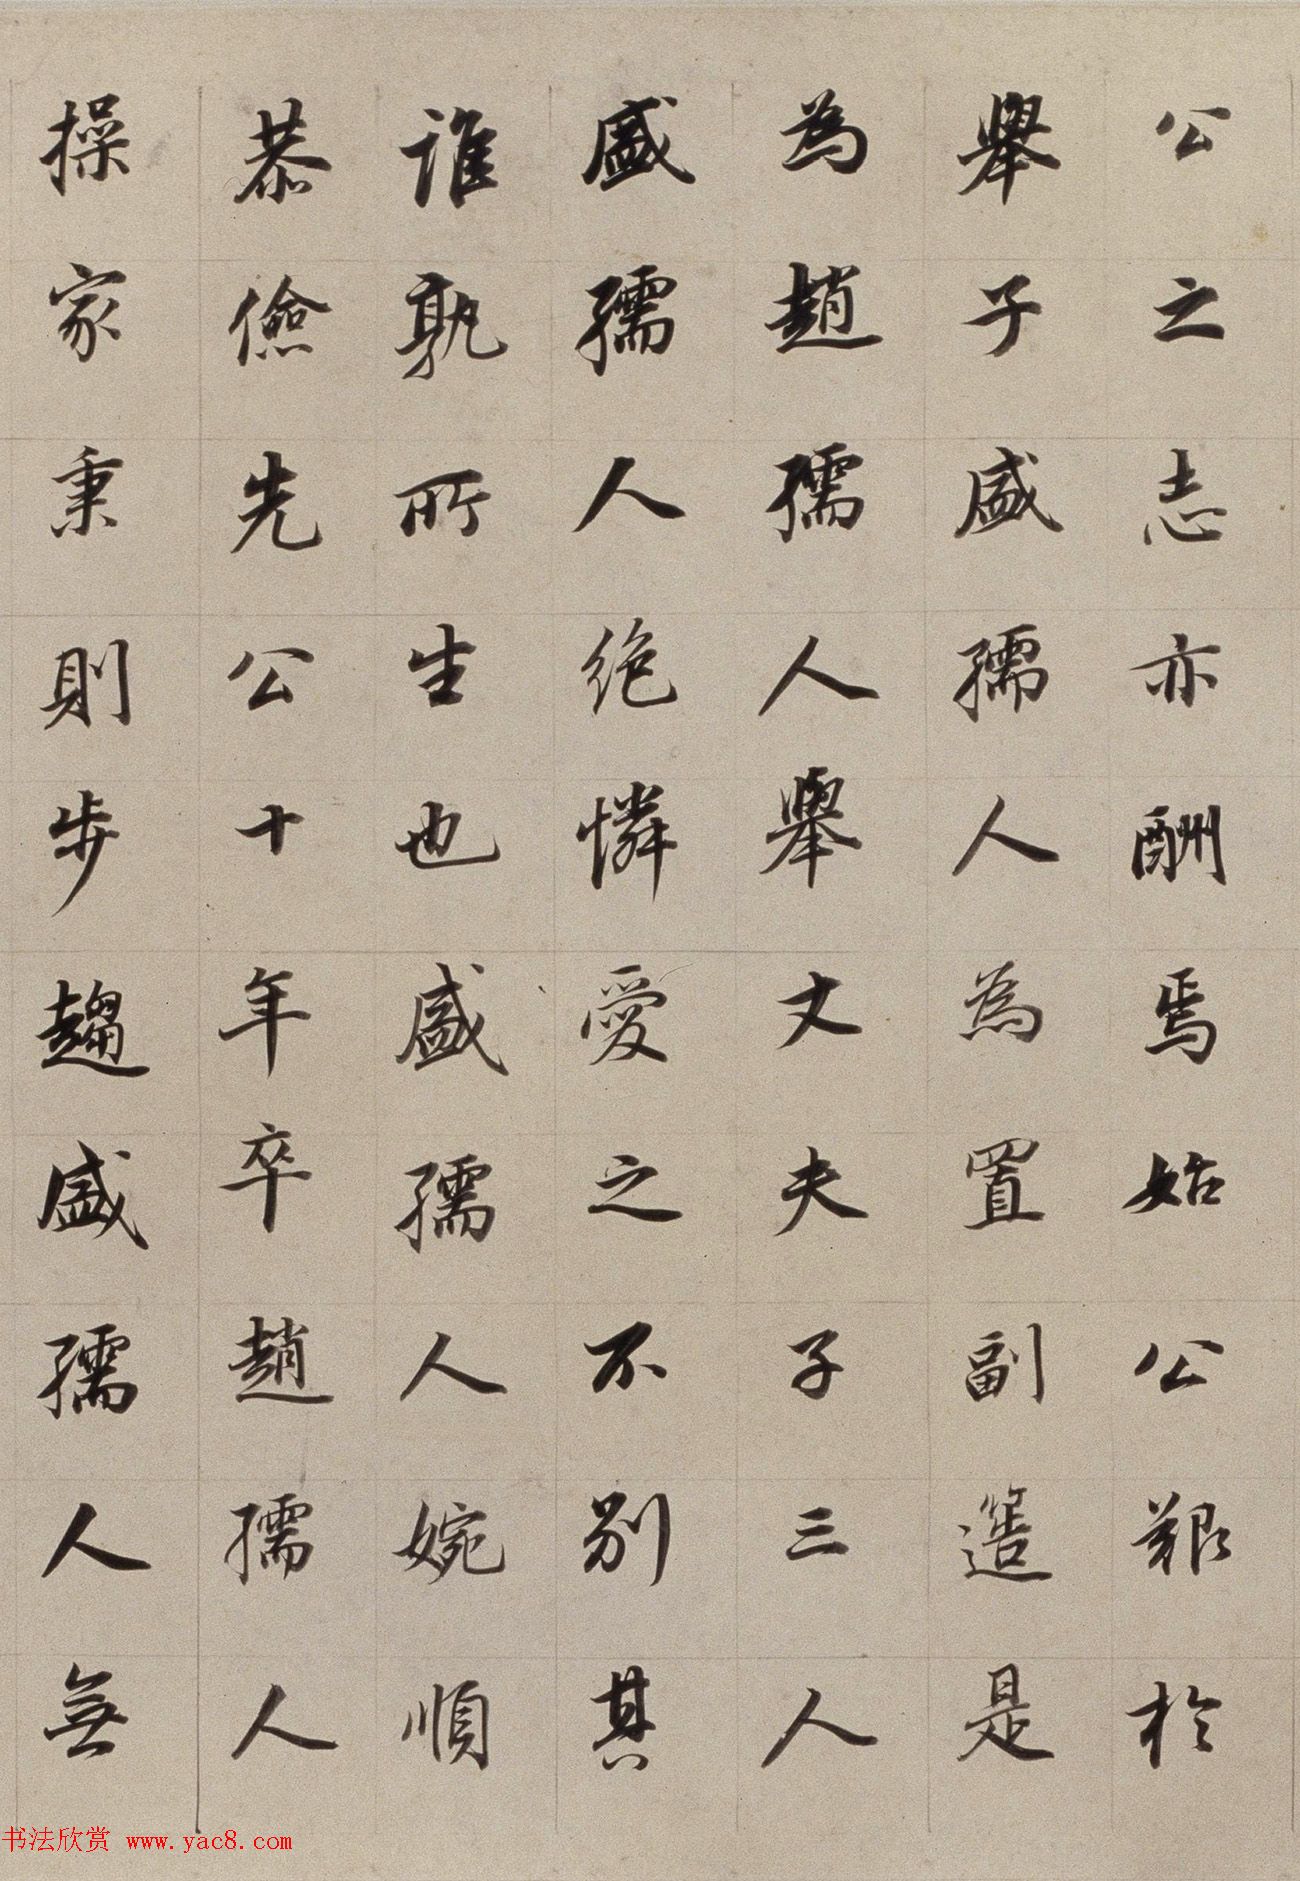 公之志亦酬焉始公艱於
舉子盛孺人為置副簉是
為趙孺人舉丈夫子三人
盛孺人絕憐愛之不别其
誰孰所生也盛孺人婉順
恭儉先公十年卒趙孺人
操家秉則步趨盛孺人無
书法欣赏 www.yac8.com